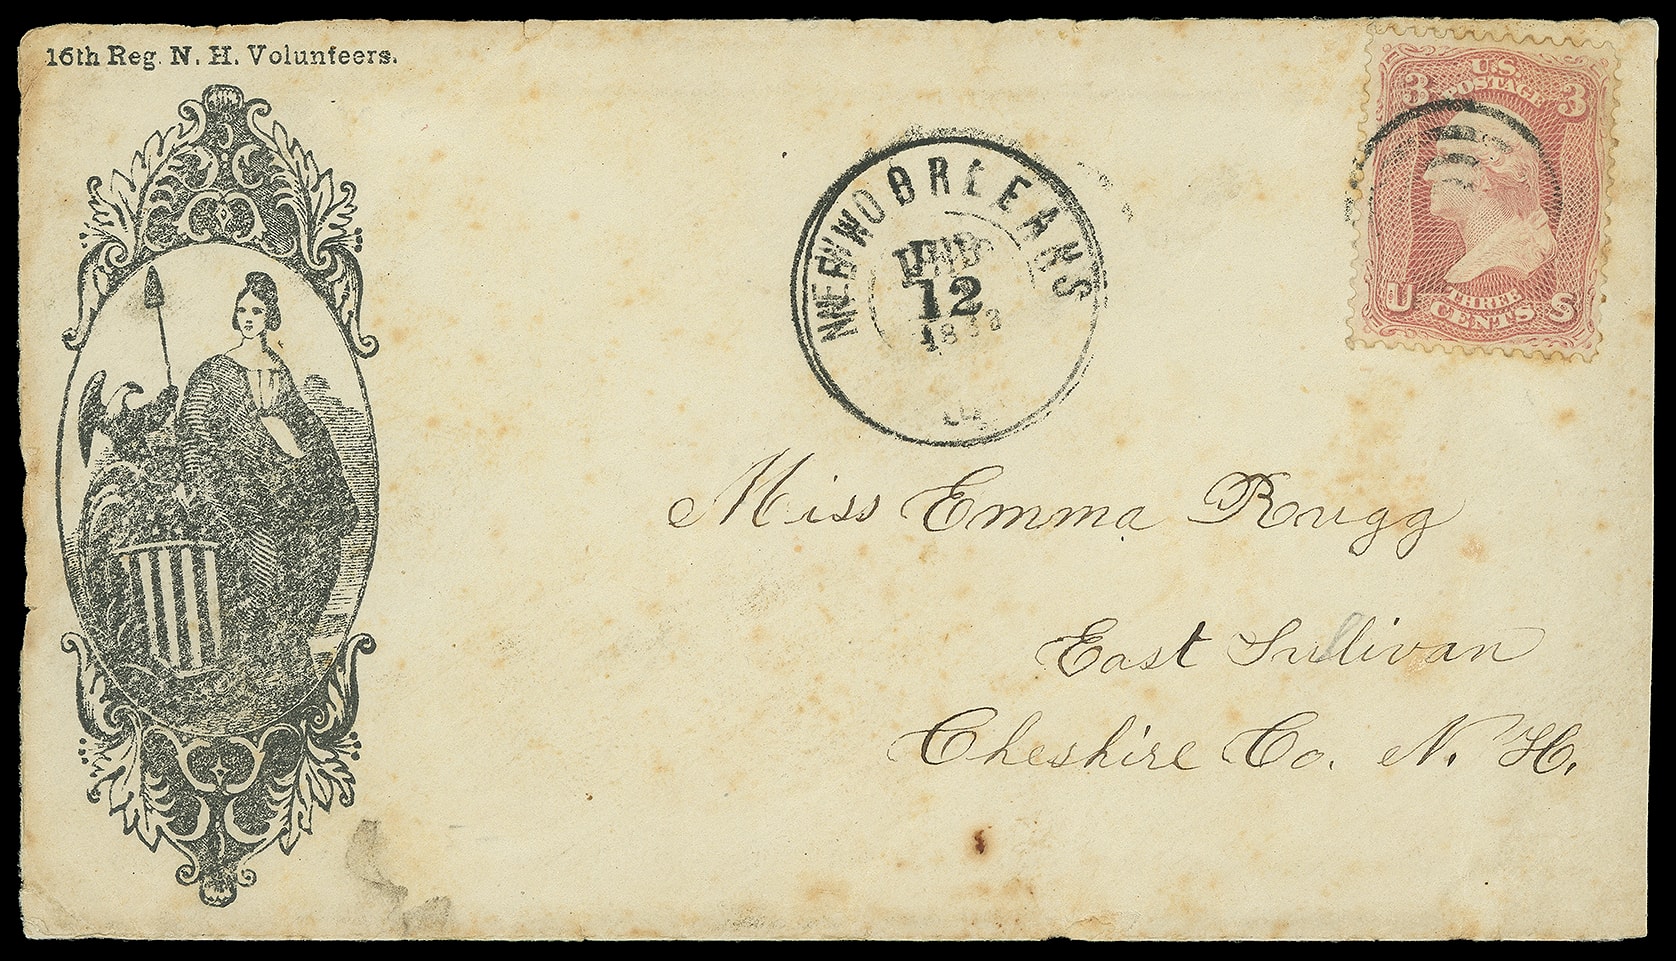 16th Reg. N. H. Volunteers.
3 U.S. POSTAGE 3
U THREE CENTS S
NEW ORLEANS
12
Miss Emma Rugg
East Sullivan
Cheshire Co. N. H.